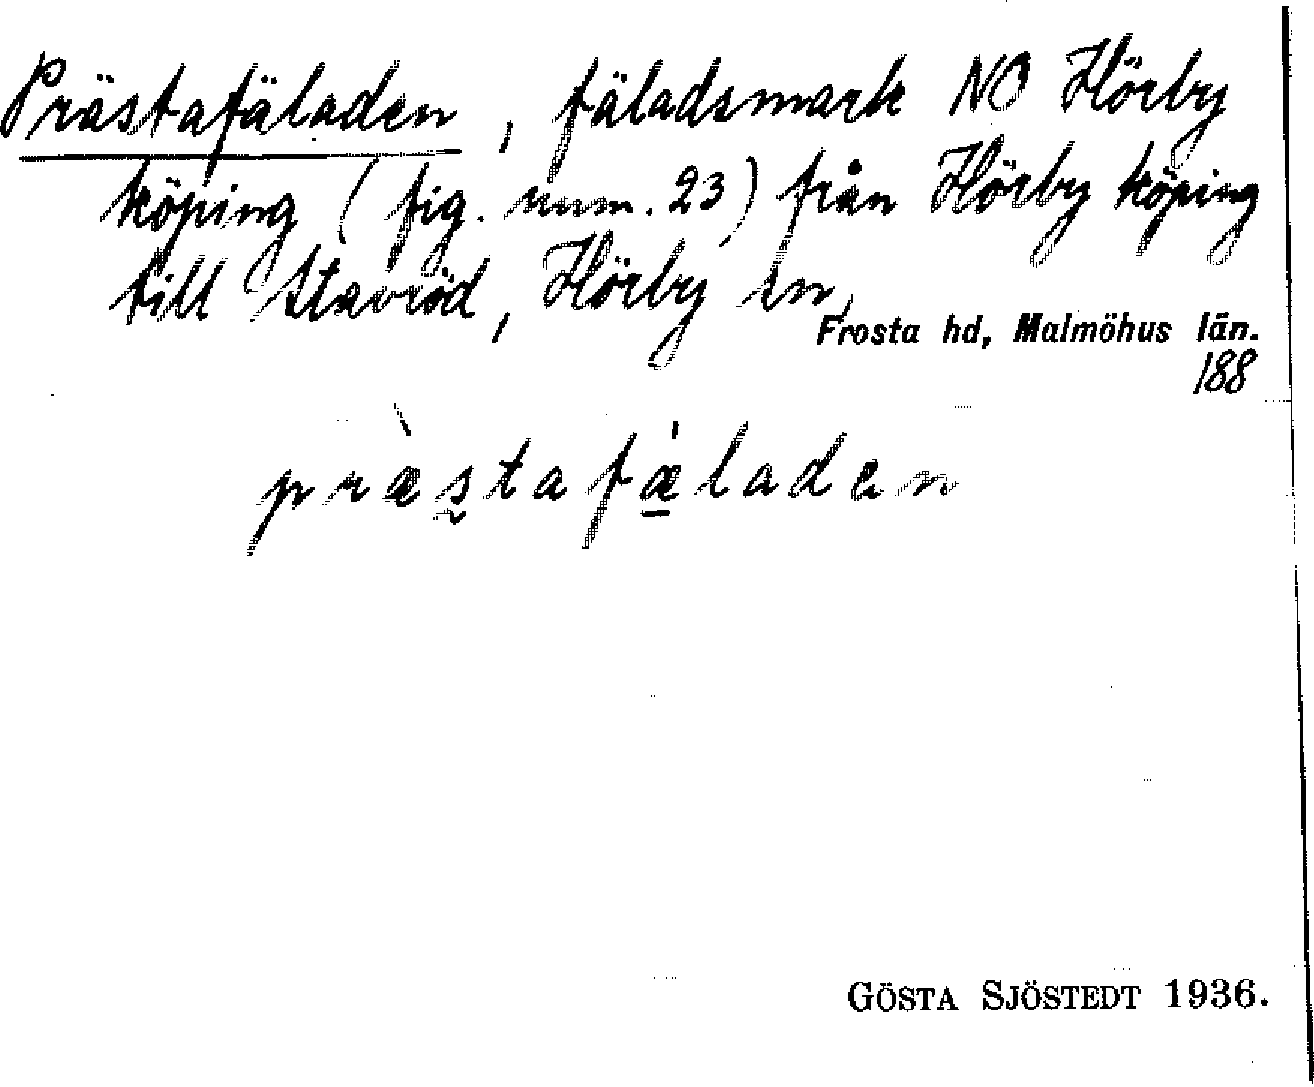 Prästafäladen, fäladsmark NO Hörby
köping (fig. num. 23) från Hörby köping
till Stavröd, Hörby sn,
Frosta hd, Malmöhus län.
188
præ̀stafæ̲̍laden
GÖSTA SJÖSTEDT 1936.